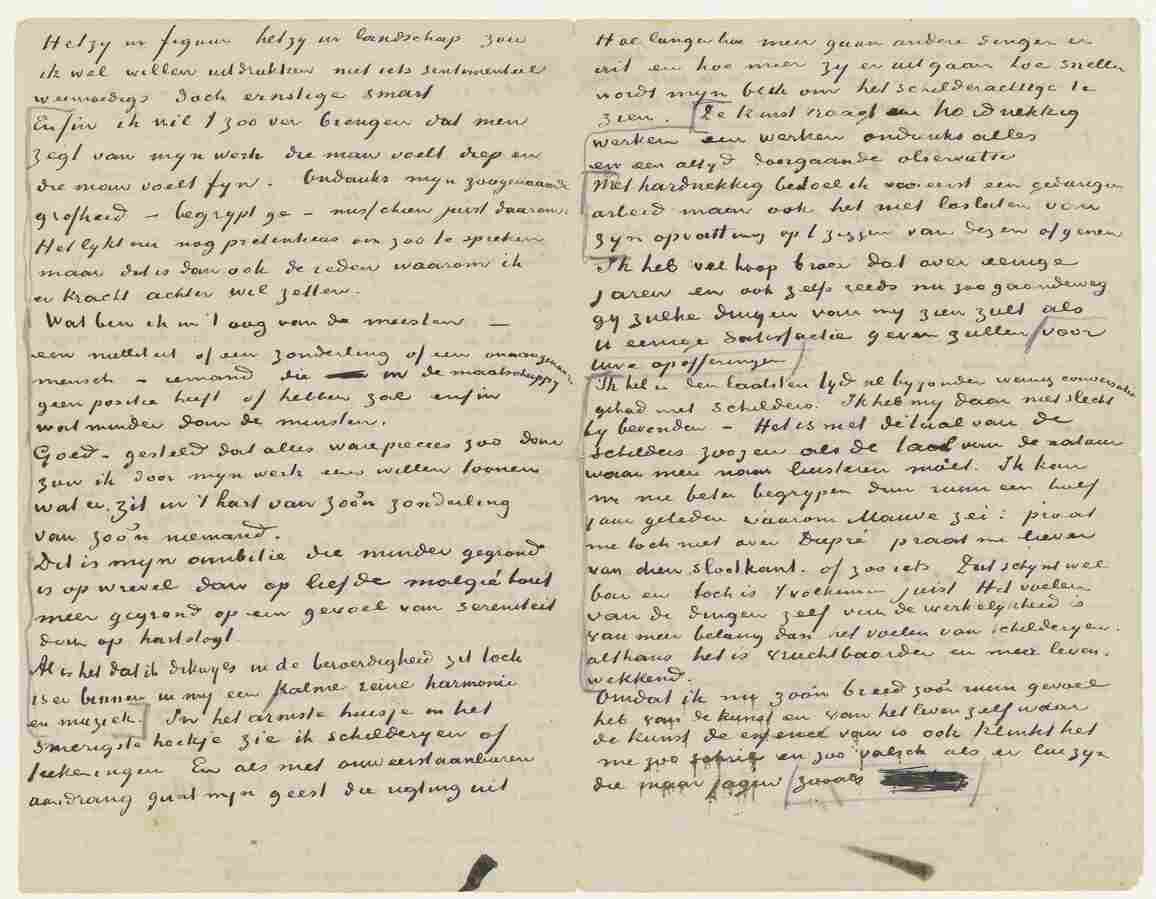 Hetzy in figuur hetzy in landschap zou
ik wel willen uitdrukken niet iets sentimenteel
weemoedigs doch ernstige smart
Enfin ik wil 't zoo ver brengen dat men
zegt van myn werk die man voelt diep en
die man voelt fyn. Ondanks myn zoogenaamde
grofheid – begrypt ge – misschien juist daarom.
Het lykt nu nog pretentieus om zoo te spreken
maar dit is dan ook de reden waarom ik
er kracht achter wil zetten.
Wat ben ik in 't oog van de meesten —
een nulliteit of een zonderling of een onaangenaam
mensch – iemand die in de maatschappy
geen positie heeft of hebben zal enfin
wat minder dan de minsten.
Goed – gesteld dat alles ware precies zoo dan
zou ik door myn werk eens willen toonen
wat er zit in 't hart van zoo'n zonderling
van zoo'n niemand.
Dit is myn ambitie die minder gegrond
is op wrevel dan op liefde malgré tout
meer gegrond op een gevoel van sereniteit
dan op hartstogt.
Al is het dat ik dikwyls in de beroerdigheid zit toch
is er binnen in my een kalme reine harmonie
en muziek. In het armste huisje in het
smerigste hoekje zie ik schilderyen of
teekeningen En als met onweerstaanbaren
aandrang gaat myn geest die rigting uit
Hoe langer hoe meer gaan andere dingen er
uit en hoe meer zy er uit gaan hoe sneller
wordt myn blik om het schilderachtige te
zien. De kunst vraagt een hardnekkig
werken een werken ondanks alles
en een altyd doorgaande observatie
Met hardnekkig bedoel ik vooreerst een gedurigen
arbeid maar ook het niet loslaten van
zyn opvatting op 't zeggen van dezen of genen
Ik heb wel hoop broer dat over eenige
jaren en ook zelfs reeds nu zoo gaandeweg
gy zulke dingen van my zien zult als
U eenige satisfactie geven zullen voor
Uwe opofferingen
Ik heb in den laatsten tyd al byzonder weinig conversatie
gehad met schilders. Ik heb my daar niet slecht
by bevonden – Het is niet de taal van de
schilders zoozeer als de taal van de natuur
waar men naar luisteren moet. Ik kan
me nu beter begrypen dan ruim een half
jaar geleden waarom Mauve zei: praat
me toch niet over Dupré praat me liever
van dien slootkant. of zoo iets Dat schynt wel
bar en toch is 't volkomen juist Het voelen
van de dingen zelf van de werkelykheid is
van meer belang dan het voelen van schilderyen.
althans het is vruchtbaarder en meer leven-
wekkend.
Omdat ik nu zoo'n breed zoo'n ruim gevoel
heb van de kunst en van het leven zelf waar
de kunst de essence van is ook klinkt het
me zoo schril en zoo valsch als er lui zyn
die maar jagen zooals